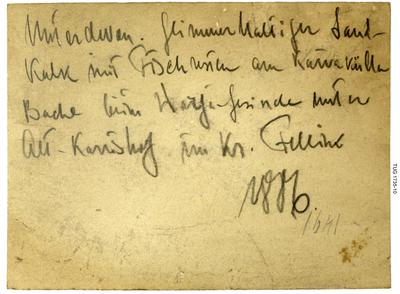 Mitteldevon. Glimmerhaltiger Sand-
Kalk mit Fischresten am Kärraküllа
Bache beim Harja-Gesinde unter
Alt-Karrishof im Kr. Fellin
1886.
1641
TUG 1735-10